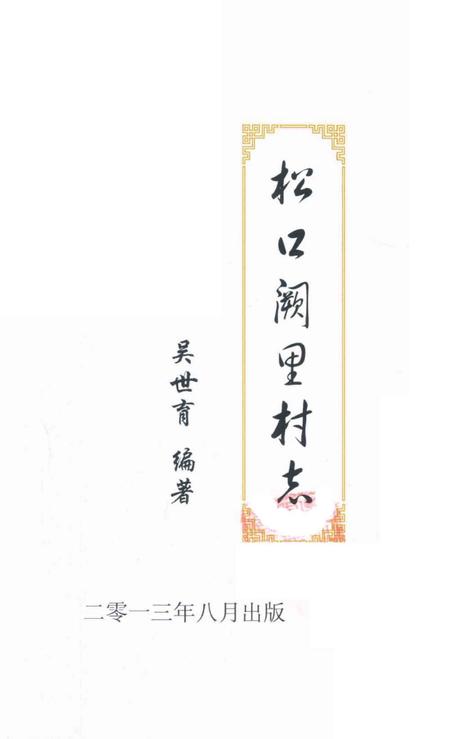 松口阙里村志
吴世育 编著
二零一三年八月出版